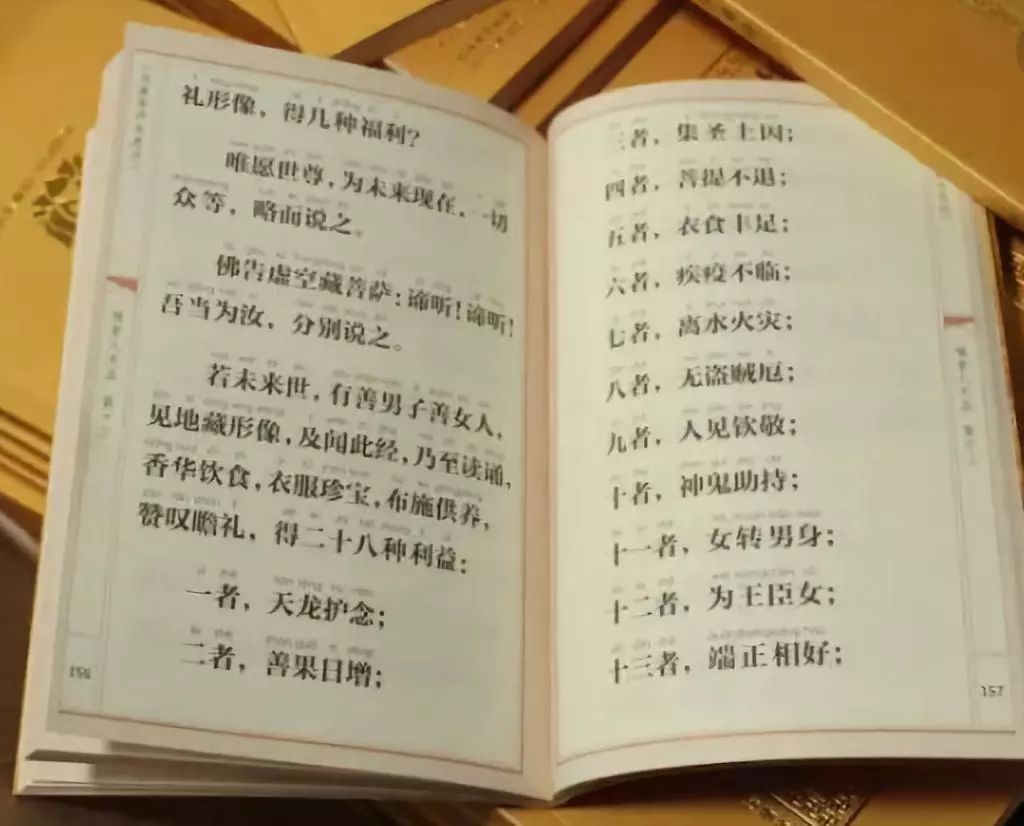 礼形像，得几种福利？
唯愿世尊，为未来现在，一切
众等，略而说之。
佛告虚空藏菩萨：谛听！谛听！
吾当为汝，分别说之。
若未来世，有善男子善女人，
见地藏形像，及闻此经，乃至读诵，
香华饮食，衣服珍宝，布施供养，
赞叹瞻礼，得二十八种利益：
一者，天龙护念；
二者，善果日增；
156
三者，集圣上因；
四者，菩提不退；
五者，衣食丰足；
六者，疾疫不临；
七者，离水火灾；
八者，无盗贼厄；
九者，人见钦敬；
十者，神鬼助持；
十一者，女转男身；
十二者，为王臣女；
十三者，端正相好；
157